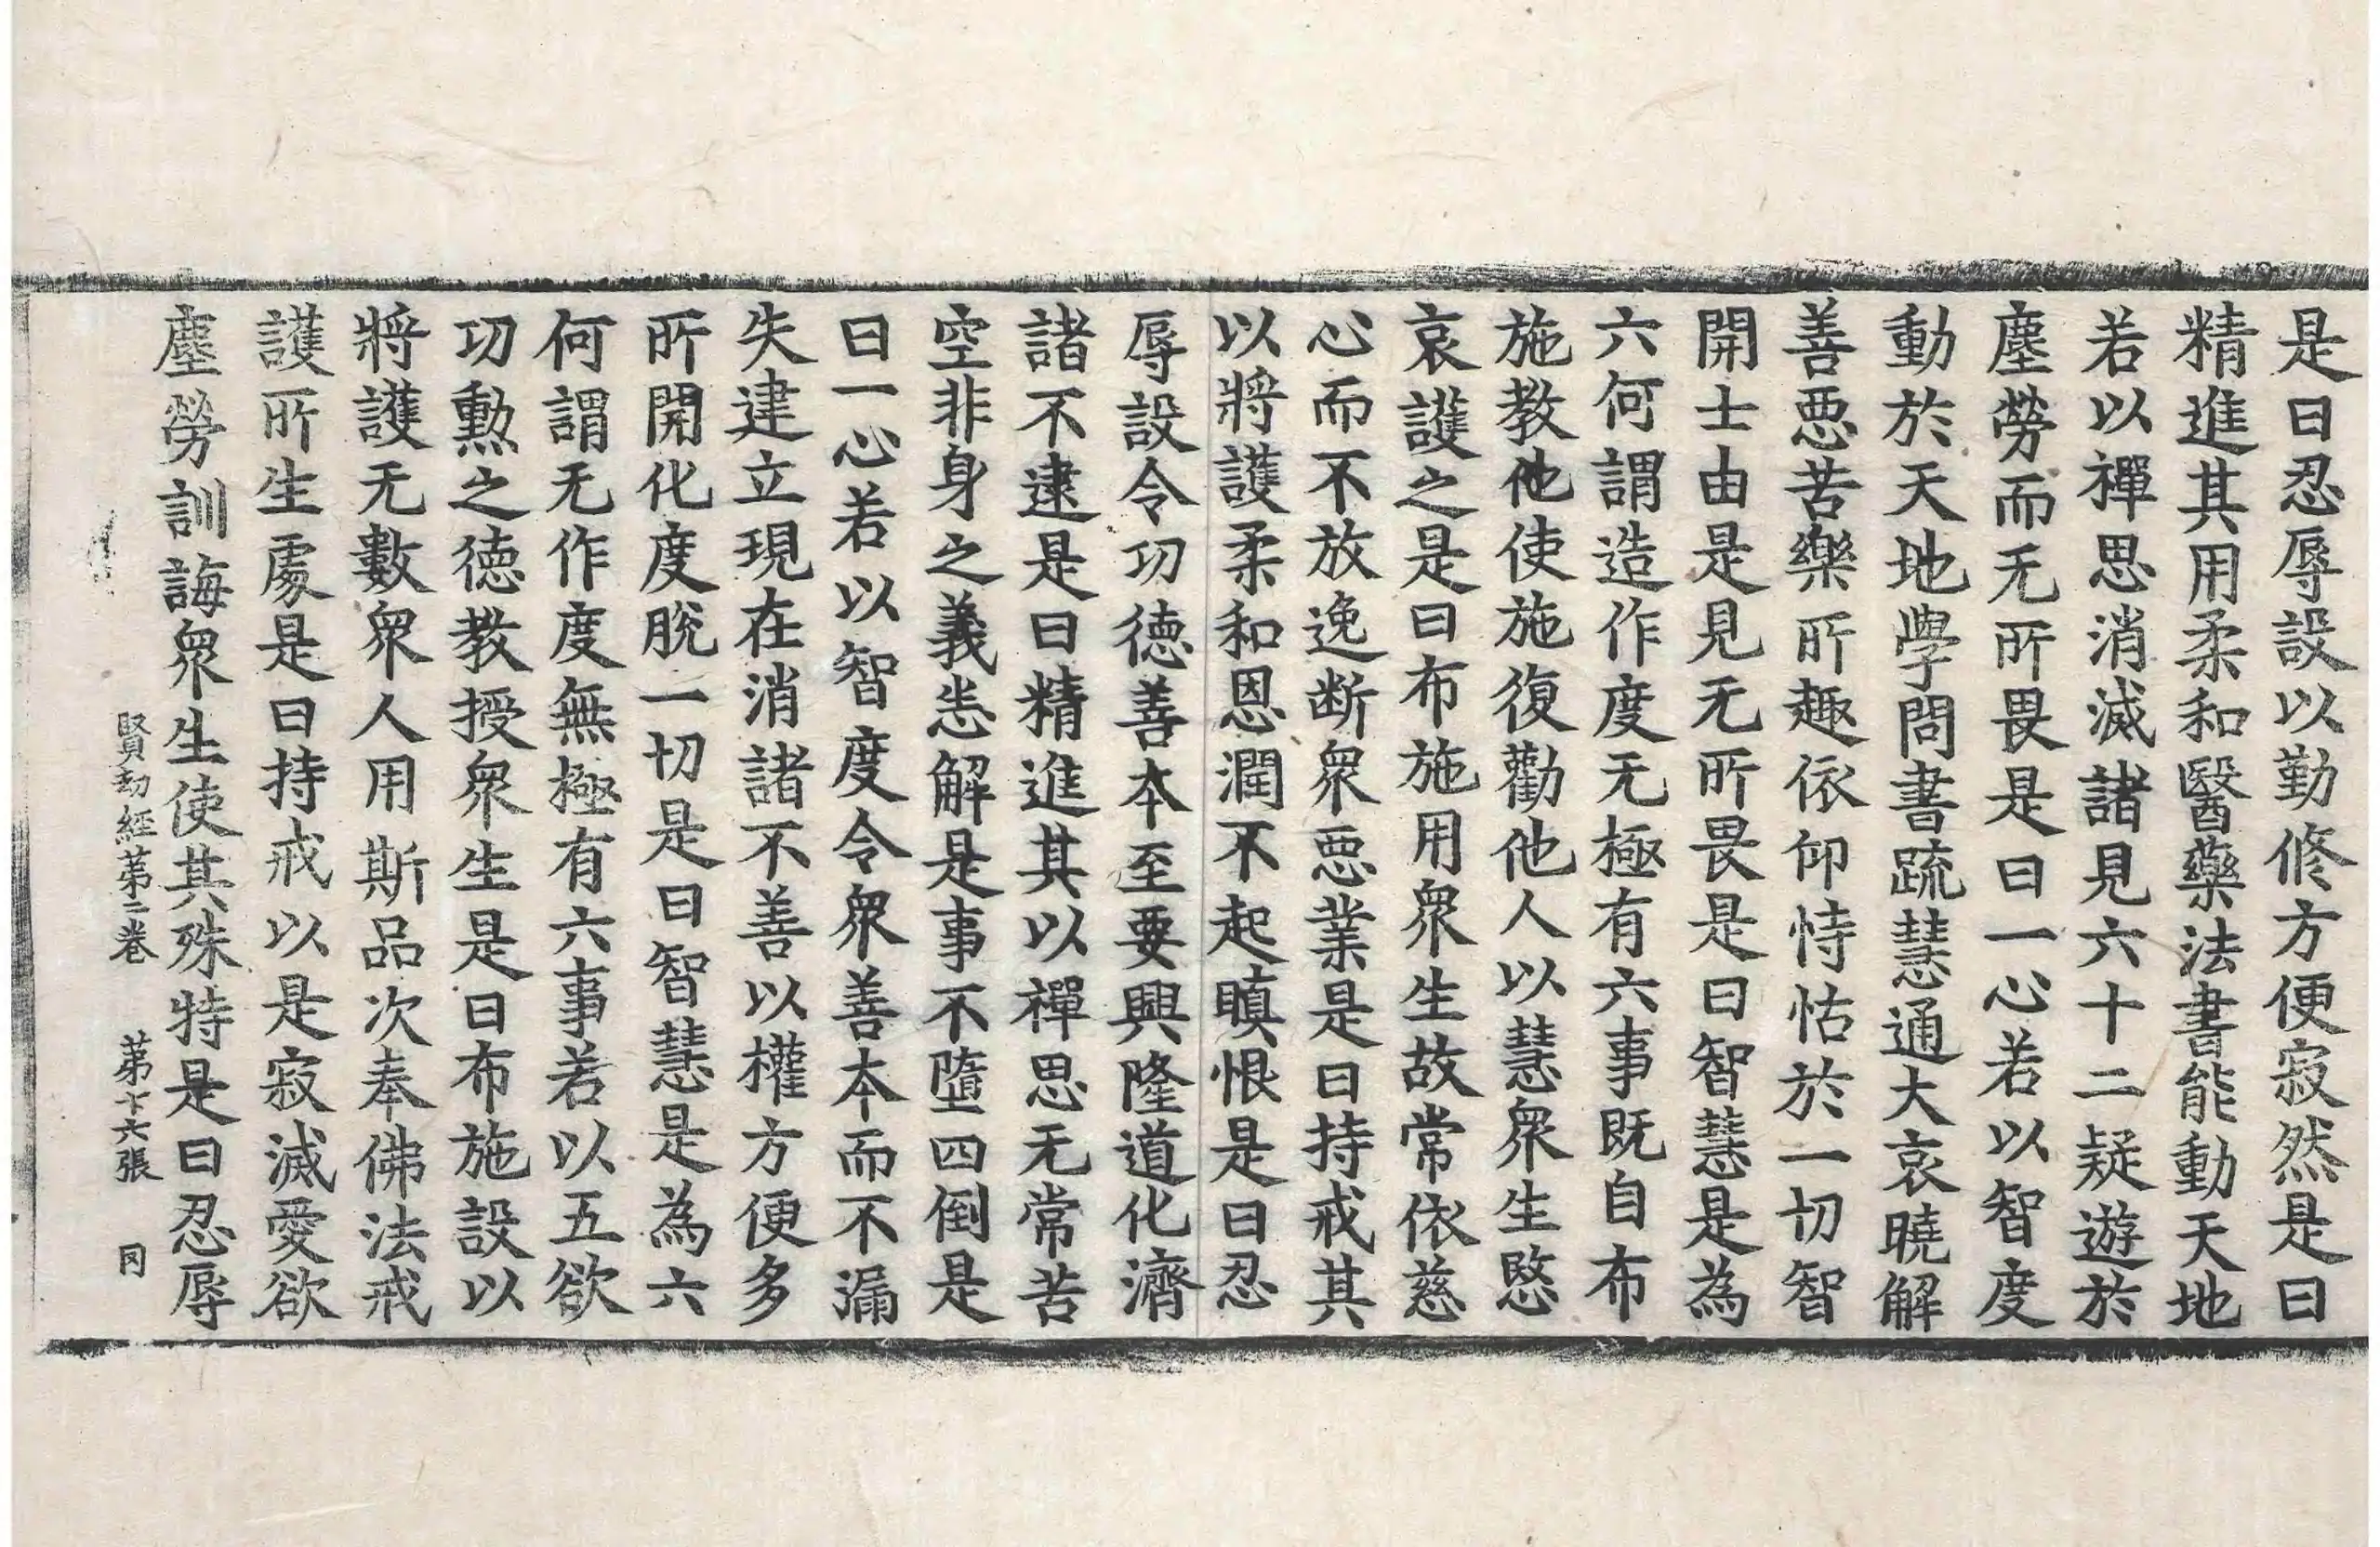 是曰忍辱設以勤修方便寂然是曰
精進其用柔和醫藥法書能動天地
若以禪思消滅諸見六十二疑遊於
塵勞而无所畏是曰一心若以智度
動於天地學問書疏慧通大哀曉解
善惡苦樂所趣依仰恃怙於一切智
開士由是見无所畏是曰智慧是為
六何謂造作度无極有六事既自布
施教他使施復勸他人以慧眾生愍
哀護之是曰布施用眾生故常依慈
心而不放逸断眾惡業是曰持戒其
以將護柔和恩潤不起瞋恨是曰忍
辱設令功德善本至要興隆道化濟
諸不逮是曰精進其以禪思无常苦
空非身之義悉解是事不墮四倒是
曰一心若以智度令眾善本而不漏
失建立現在消諸不善以權方便多
所開化度脫一切是曰智慧是為六
何謂无作度無極有六事若以五欲
功勳之德教授眾生是曰布施設以
將護无數眾人用斯品次奉佛法戒
護所生處是曰持戒以是寂滅愛欲
塵勞訓誨眾生使其殊特是曰忍辱
賢劫經第二卷 第十六張 罔